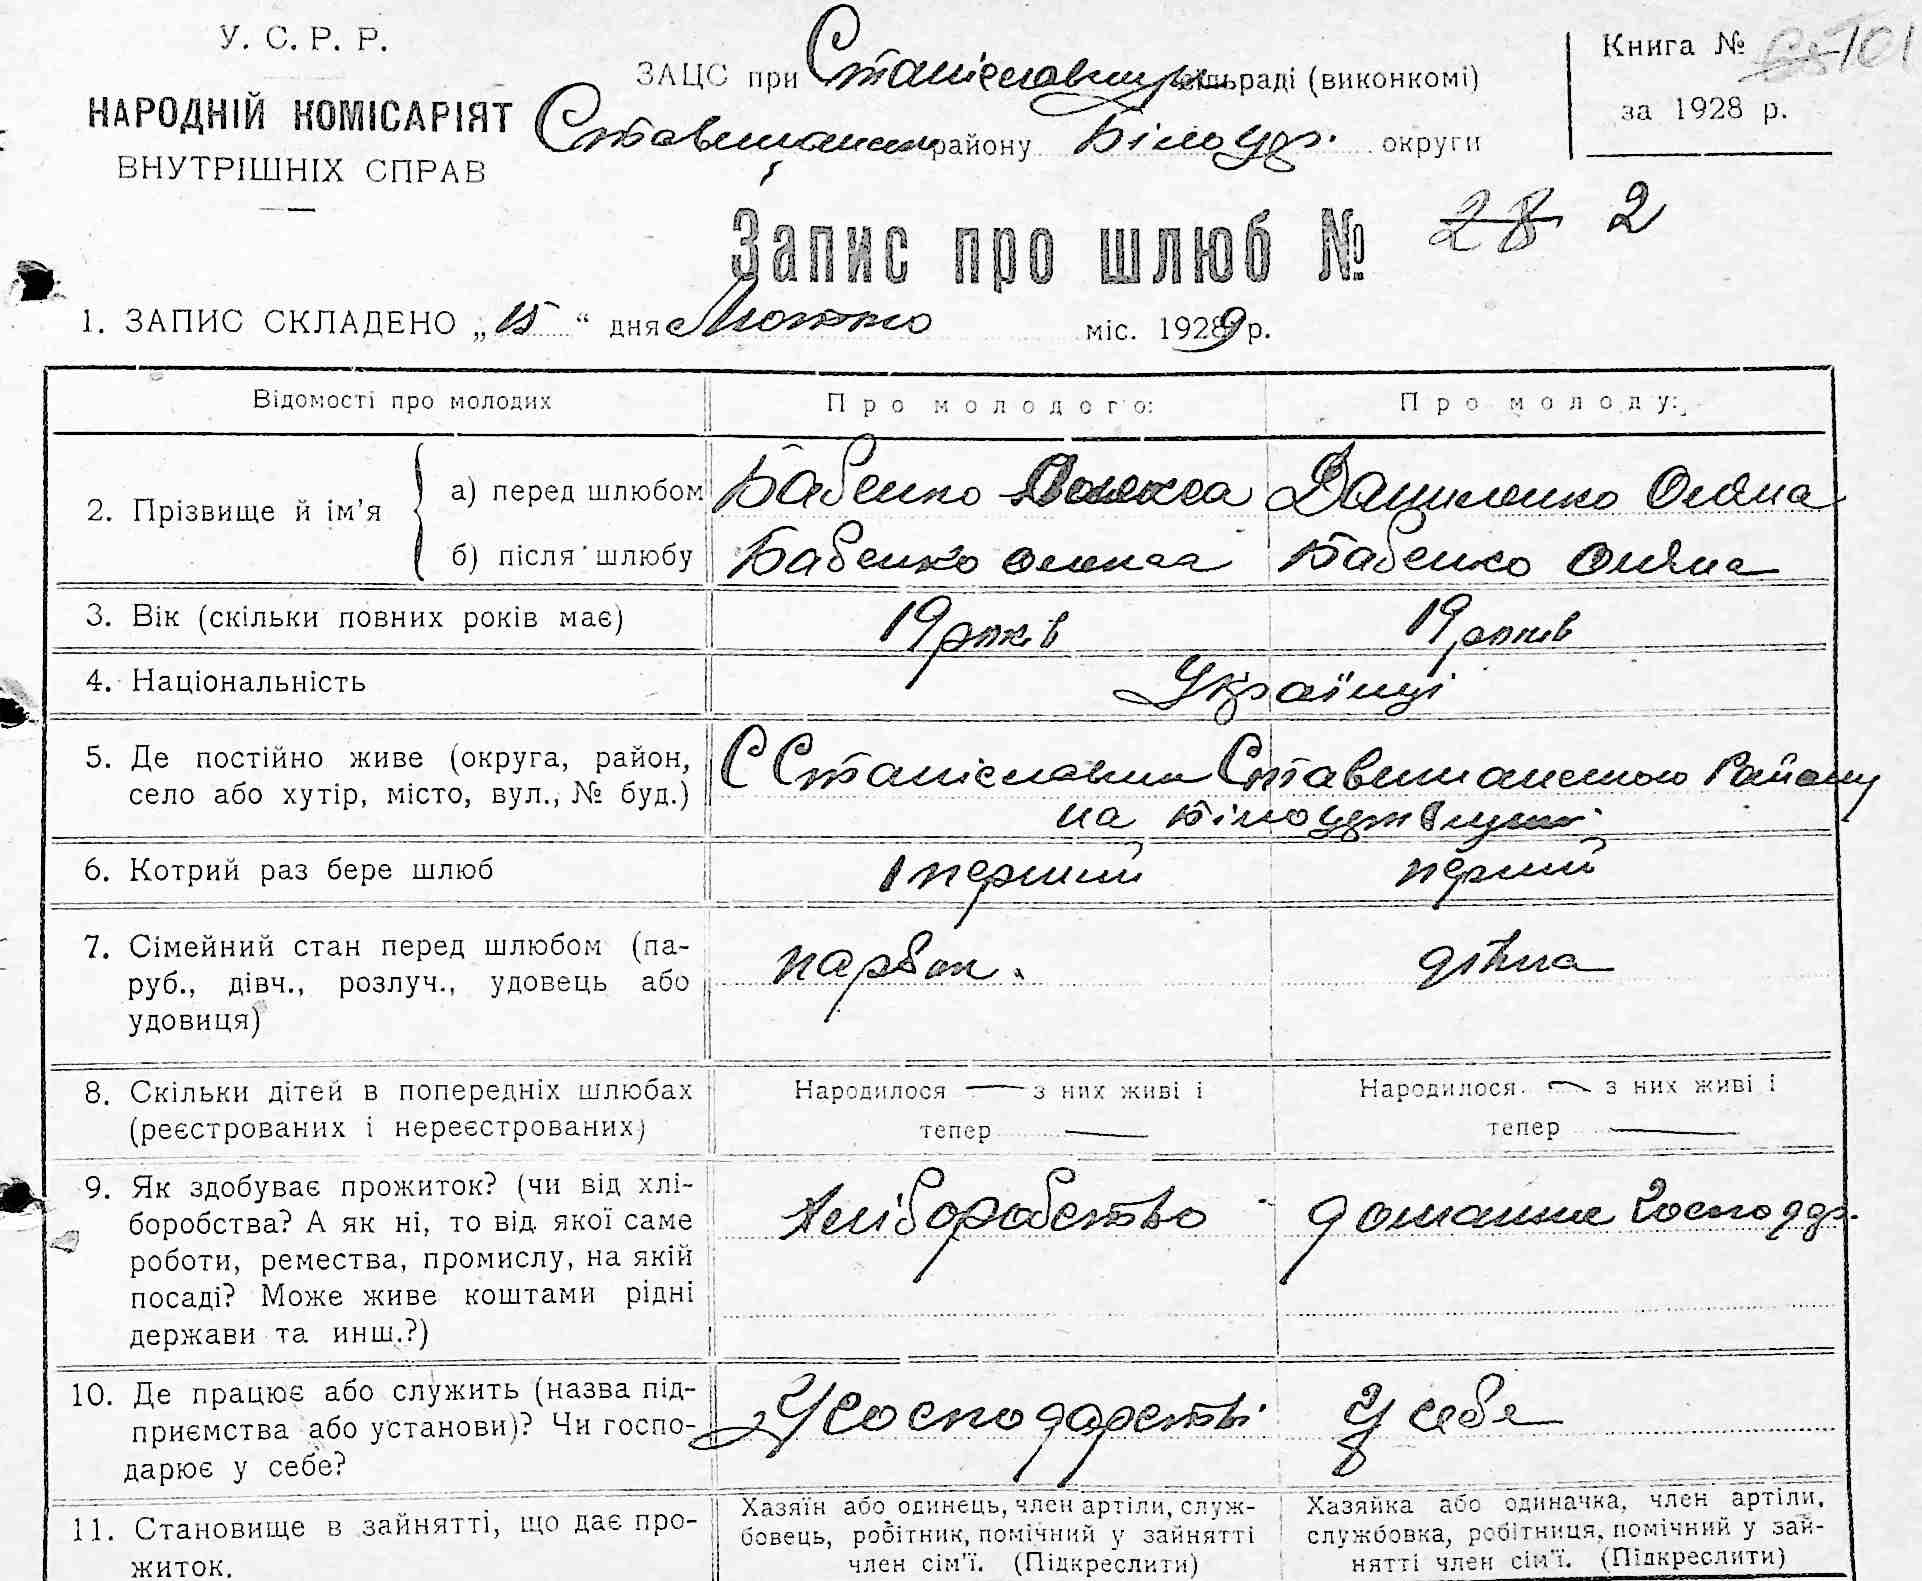 У. С. Р. Р.
НАРОДНІЙ КОМІСАРІЯТ
ВНУТРІШНІХ СПРАВ
ЗАЦС при Станіславчик сільраді (виконкомі)
району Білоцер. округи
Книга №
за 1928 р.
Запис про шлюб № 28 2
1. ЗАПИС СКЛАДЕНО „15“ дня Лютого міс. 1929 р.
Відомості про молодих Про молодого: Про молоду:
2. Прізвище й ім'я
а) перед шлюбом Бабенко Олекса Даниленко Оляна
б) після шлюбу Бабенко Олекса Бабенко Оляна
3. Вік (скільки повних років має) 19 років 19 років
4. Національність Українці
5. Де постійно живе (округа, район, С Станіславчик Ставищанського Району
село або хутір, місто, вул., № буд.) на
6. Котрий раз бере шлюб перший перший
7. Сімейний стан перед шлюбом (па- парубок. дівка
руб., дівч., розлуч., удовець або
удовиця)
8. Скільки дітей в попередніх шлюбах Народилося — з них живі і Народилося — з них живі і
(реєстрованих і нереєстрованих) тепер — тепер —
9. Як здобуває прожиток? (чи від хлі- Хліборобство домашнє господар.
боробства? А як ні, то від якої саме
роботи, ремества, промислу, на якій
посаді? Може живе коштами рідні
держави та инш.?)
10. Де працює або служить (назва під- У господарстві у себе
приємства або установи)? Чи госпо-
дарює у себе?
11. Становище в зайнятті, що дає про-
житок.
Хазяїн або одинець, член артіли, служ-
бовець, робітник, помічний у зайнятті
член сім'ї. (Підкреслити)
Хазяйка або одиначка, член артіли,
службовка, робітниця, помічний у зай-
нятті член сім'ї. (Підкреслити)